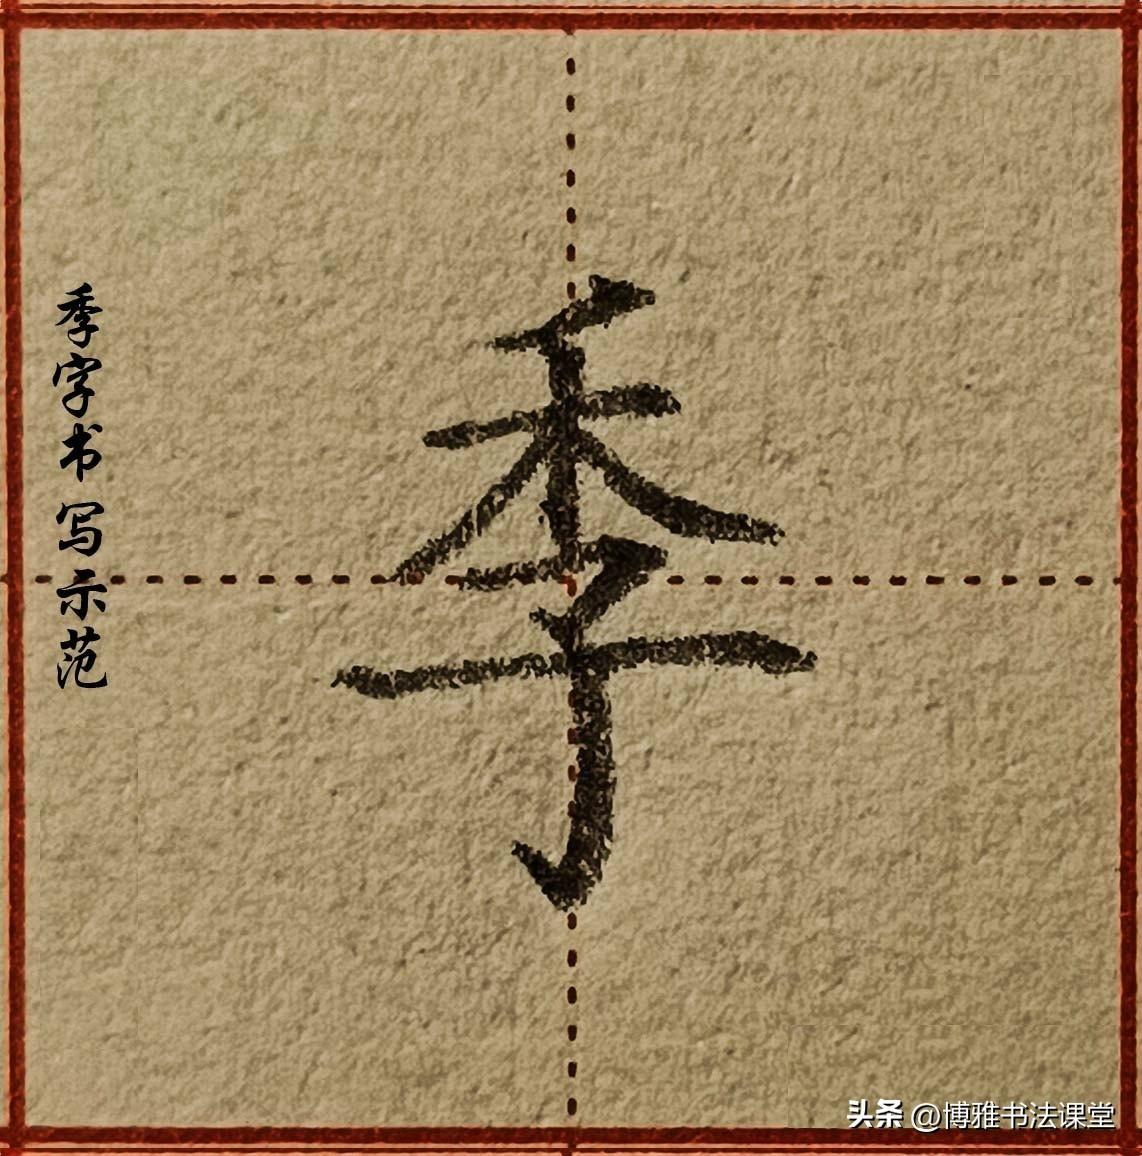 季字书写示范
季
头条 @博雅书法课堂